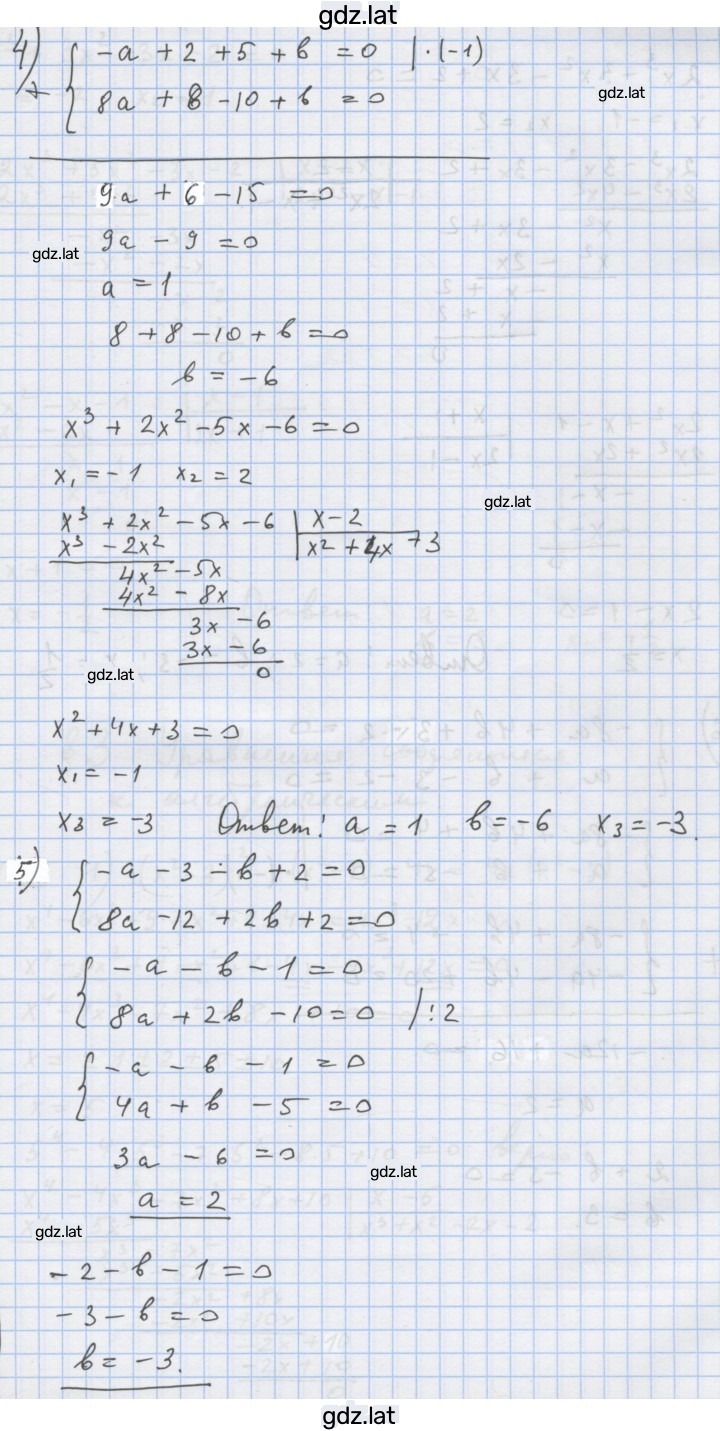 gdz.lat
4) { -a + 2 + 5 + b = 0 | · (-1)
+ { 8a + 8 - 10 + b = 0
gdz.lat
9a + 6 - 15 = 0
9a - 9 = 0
gdz.lat
a = 1
8 + 8 - 10 + b = 0
b = -6
x³ + 2x² - 5x - 6 = 0
x₁ = -1 x₂ = 2
gdz.lat
x³ + 2x² - 5x - 6 | x - 2
x³ - 2x² | x² + 4x + 3
4x² - 5x
4x² - 8x
3x - 6
3x - 6
0
gdz.lat
x² + 4x + 3 = 0
x₁ = -1
x₃ = -3 Ответ: a = 1 b = -6 x₃ = -3.
5) { -a - 3 - b + 2 = 0
{ 8a - 12 + 2b + 2 = 0
{ -a - b - 1 = 0
{ 8a + 2b - 10 = 0 | : 2
{ -a - b - 1 = 0
{ 4a + b - 5 = 0
3a - 6 = 0
gdz.lat
a = 2
gdz.lat
-2 - b - 1 = 0
-3 - b = 0
b = -3.
gdz.lat